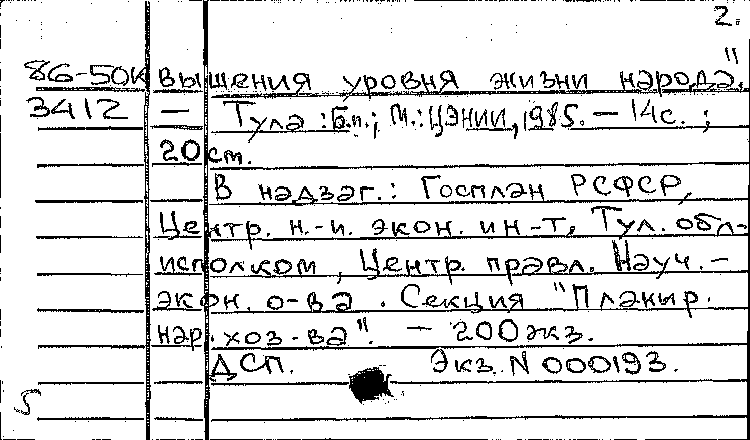 2.
86-50К вышения уровня жизни народа".
3412 — Тула : Б.и.; М.: ЦЭНИИ, 1985. — 14с. ;
20 см.
В надзаг.: Госплан РСФСР,
Центр. н.-и. экон. ин-т, Тул. обл-
исполком, Центр. правл. Науч.-
экон. о-ва. Секция "Планир.
нар. хоз-ва". — 200 экз.
ДСП. Экз. N 000193.
5